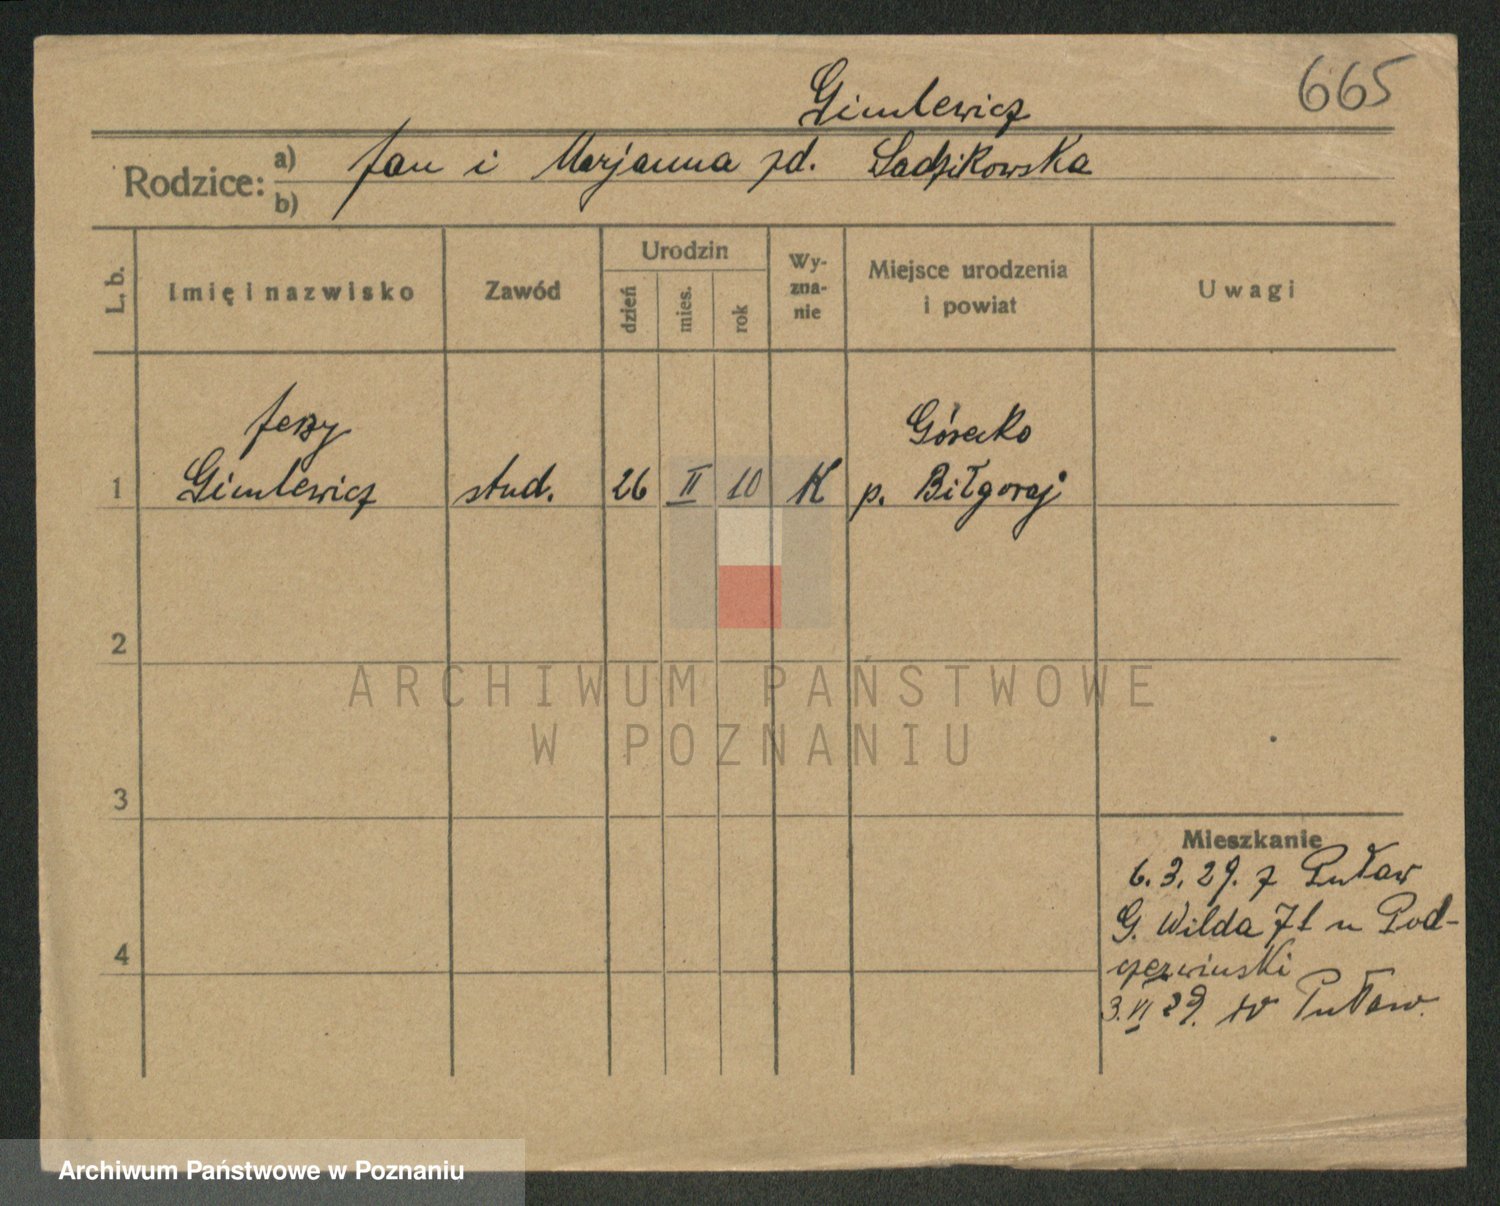 665
Gimlewicz
Rodzice: a) Jan i Marjanna zd. Sadzikowska
b)
L. b. Imię i nazwisko Zawód Urodzin dzień mies. rok Wy-zna-nie Miejsce urodzenia i powiat Uwagi
Jerzy Górecko
1 Gimlewicz stud. 26 II 10 K p. Biłgoraj
2
ARCHIWUM PAŃSTWOWE
W POZNANIU
3
Mieszkanie
6. 3. 29. z Puław
G. Wilda 71 u Pod-
czerwinski
4
3. VI 29. do Puław.
Archiwum Państwowe w Poznaniu